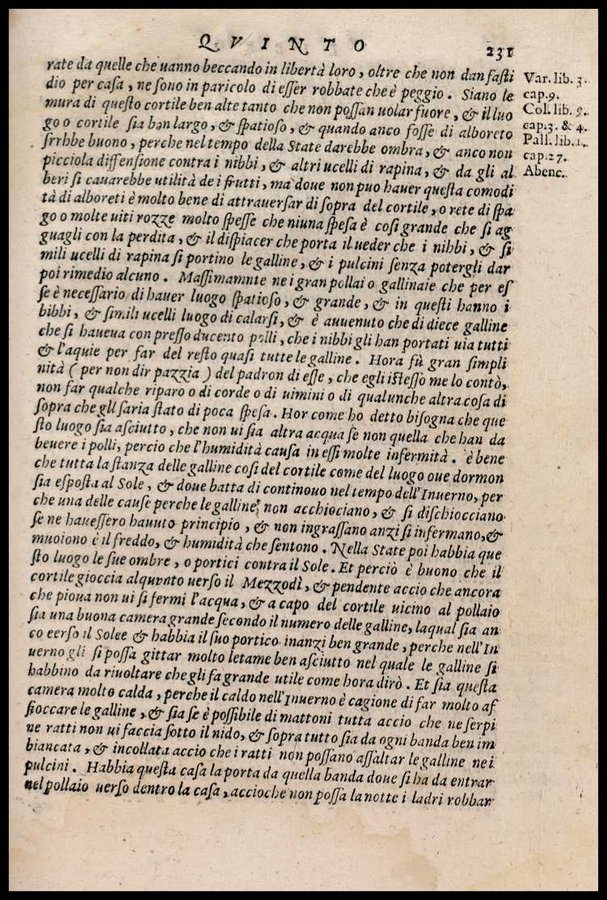 QVINTO 231
rate da quelle che uanno beccando in libertà loro, oltre che non dan fasti
dio per casa, ne sono in paricolo di esser robbate che è peggio. Siano le
mura di questo cortile ben alte tanto che non possan uolar fuore, & il luo
go o cortile sia ban largo, & spatioso, & quando anco fosse di alboreto
srrhbe buono, perche nel tempo della State darebbe ombra, & anco non
picciola dissensione contra i nibbi, & altri ucelli di rapina, & da gli al
beri si cauarebbe utilità de i frutti, ma doue non puo hauer questa comodi
tà di alboreti è molto bene di attrauersar di sopra del cortile, o rete di spa
go o molte uiti rozze molto spesse che niuna spesa è cosi grande che si ag
guagli con la perdita, & il dispiacer che porta il ueder che i nihbi, & si
mili ucelli di rapina si portino le galline, & i pulcini senza potergli dar
poi rimedio alcuno. Massimamnte ne i gran pollai o gallinaie che per es
se è necessario di hauer luogo spatioso, & grande, & in questi hanno i
bibbi, & simili ucelli luogo di calarsi, & è auuenuto che di diece galline
che si haueua con presso ducento polli, che i nibbi gli han portati uia tutti
& l'aquie per far del resto quasi tutte le galline. Hora fù gran simpli
nità (per non dir pazzia) del padron di esse, che egli istesso me lo contò,
non far qualche riparo o di corde o di uimini o di qualunche altra cosa di
sopra che gli saria stato di poca spesa. Hor come ho detto bisogna che que
sto luogo sia asciutto, che non ui sia altra acqua se non quella che han da
beuere i polli, percio che l'humidità causa in essi molte infermità. è bene
che tutta la stanza delle galline cosi del cortile come del luogo oue dormon
sia esposta al Sole, & doue batta di continouo nel tempo dell'Inuerno, per
che una delle cause perche le galline non acchiociano, & si dischiocciano
se ne hauessero hauuto principio, & non ingrassano anzi si infermano, &
muoiono è il freddo, & humidità che sentono. Nella State poi habbia que
sto luogo le sue ombre, o portici contra il Sole. Et perciò è buono che il
cortile gioccia alquanto uerso il Mezzodì, & pendente accio che ancora
che pioua non ui si fermi l'acqua, & a capo del cortile uicino al pollaio
sia una buona camera grande secondo il numero delle galline, laqual sia an
co eerso il Solee & habbia il suo portico inanzi ben grande, perche nell'In
uerno gli si possa gittar molto letame ben asciutto nel quale le galline si
habbino da riuoltare che gli fa grande utile come hora dirò. Et sia questa
camera molto calda, perche il caldo nell'Inuerno è cagione di far molto af
fioccare le galline, & sia se è possibile di mattoni tutta accio che ne serpi
ne ratti non ui faccia sotto il nido, & sopra tutto sia da ogni banda ben im
biancata, & incollata accio che i ratti non possano assaltar le galline ne i
pulcini. Habbia questa casa la porta da quella banda doue si ha da entrar
nel pollaio uerso dentro la casa, accioche non possa la notte i ladri robbar
Var. lib. 3.
cap. 9.
Col. lib. 9.
cap. 3. & 4.
Pall. lib. 1.
cap. 27.
Abenc.